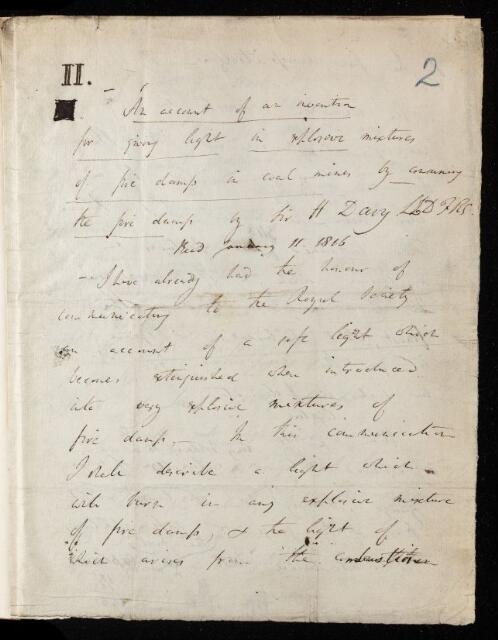 II.
2
- An account of an invention
for giving light in explosive mixtures
of fire damp in coal mines by consuming
the fire damp by Sir H Davy LLD FRS.
Read January 11. 1816
- I have already had the honour of
communicating to the Royal Society
an account of a safe light which
becomes extinguished when introduced
into very explosive mixtures of
fire damp. - In this communication
I shall describe a light which -
will burn in any explosive mixture
of fire damp, & the light of
which arises from the combustion